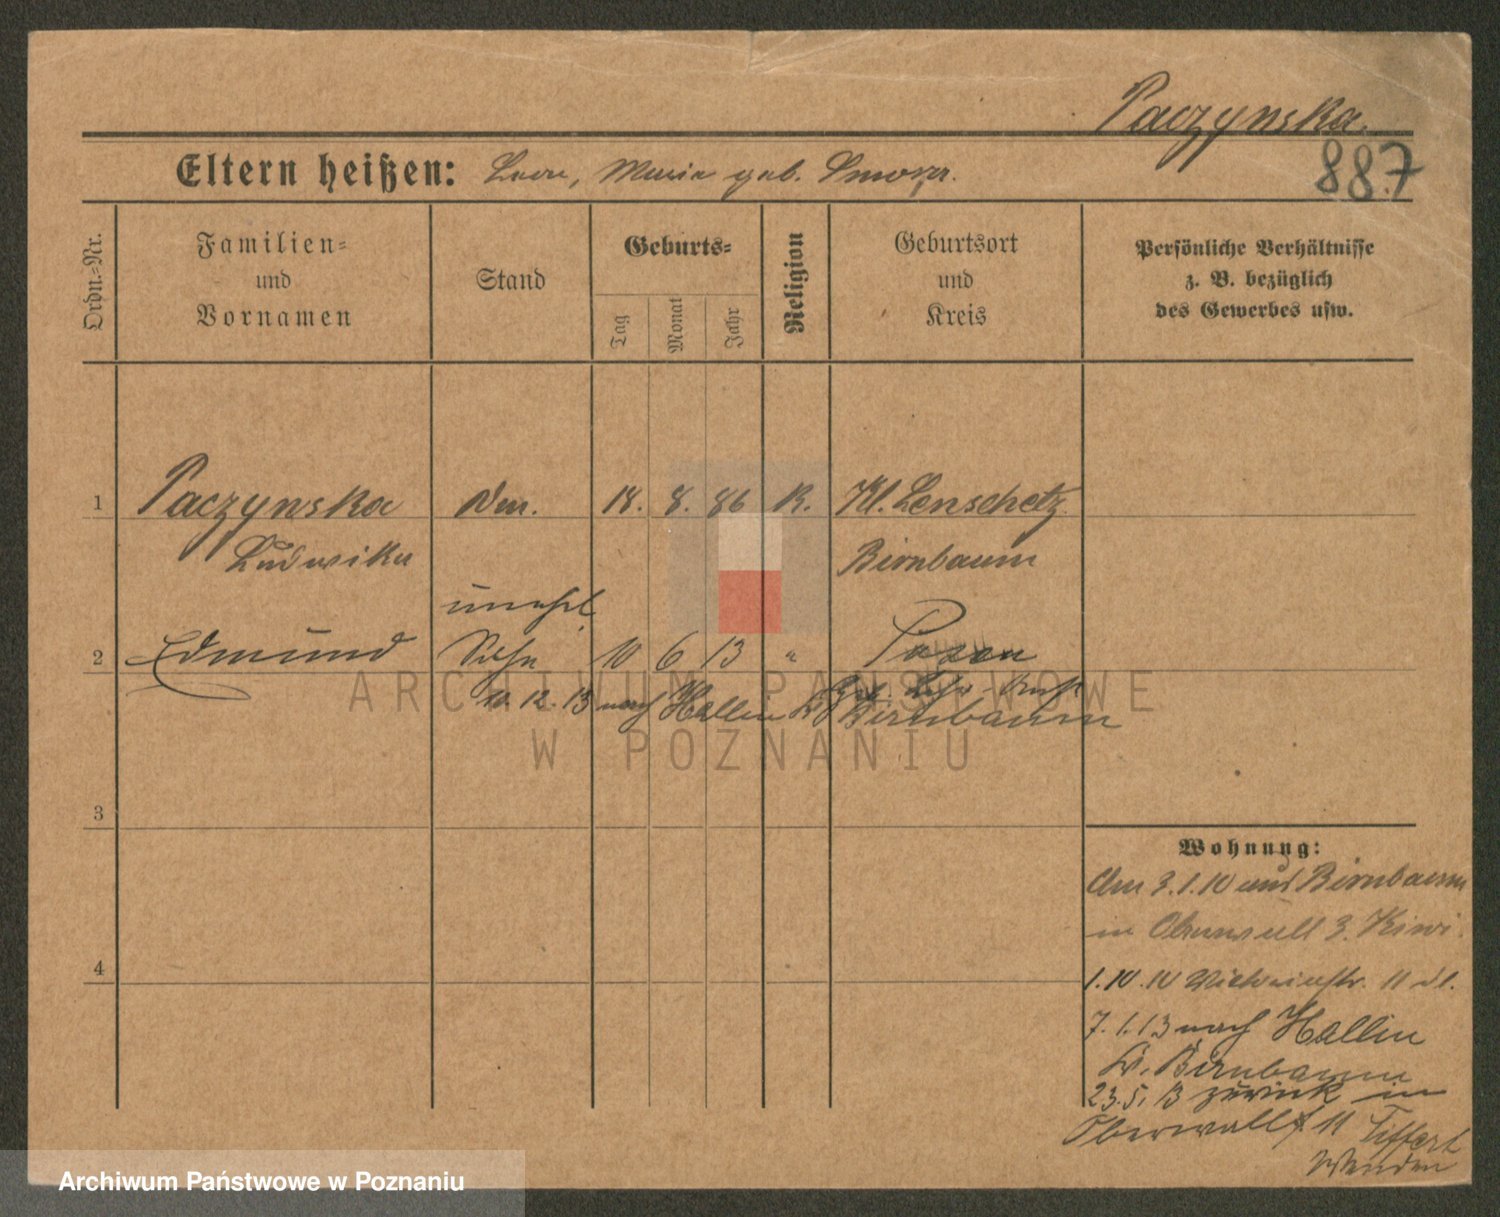 Paczynska.
887
Eltern heißen: Leon, Maria geb.
Ordn.-Nr.
Familien-
und
Vornamen
Stand
Geburts-
Tag
Monat
Jahr
Religion
Geburtsort
und
Kreis
Persönliche Verhältnisse
z. B. bezüglich
des Gewerbes usw.
1 Paczynska 18. 8. 86 R. Kl. Lenschetz
Ludwika Birnbaum
unehl.
2 Edmund Sohn 10 6 13 " Posen
10. 12. 13 nach Hallin Birnbaum
3
4
Wohnung:
Am 3.1.10 aus Birnbaum
in 3.
1.10.10 Victoriastr. 11
7.1.13 nach Hallin
Kr. Birnbaum
23.5.13 zurück in
Oberwallstr 11 Tiffert
ARCHIWUM PAŃSTWOWE
W POZNANIU
Archiwum Państwowe w Poznaniu